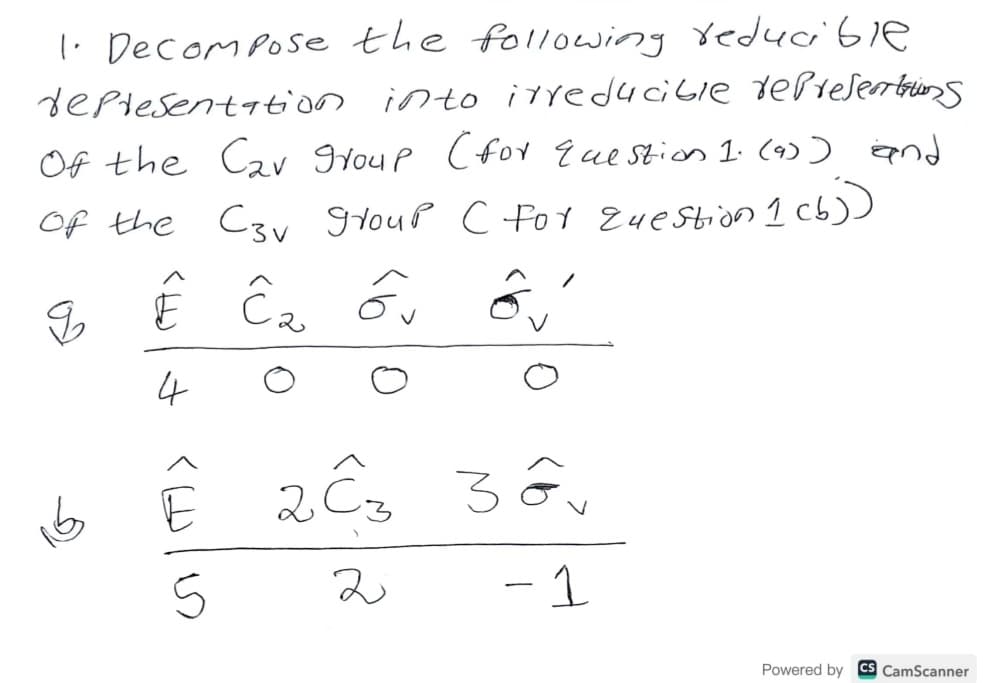 1. Decompose the following reducible
representation into irreducible representations
Of the C₂ᵥ group (for question 1. (a)) and
Of the C₃ᵥ group (for question 1 (b))
a) Ê Ĉ₂ σ̂ᵥ σ̂ᵥ′
4 0 0 0
b) Ê 2Ĉ₃ 3σ̂ᵥ
5 2 -1
Powered by CS CamScanner